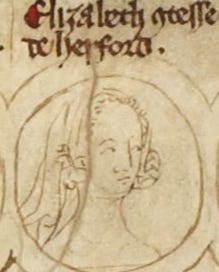 Elizabeth ctesse
de herford.